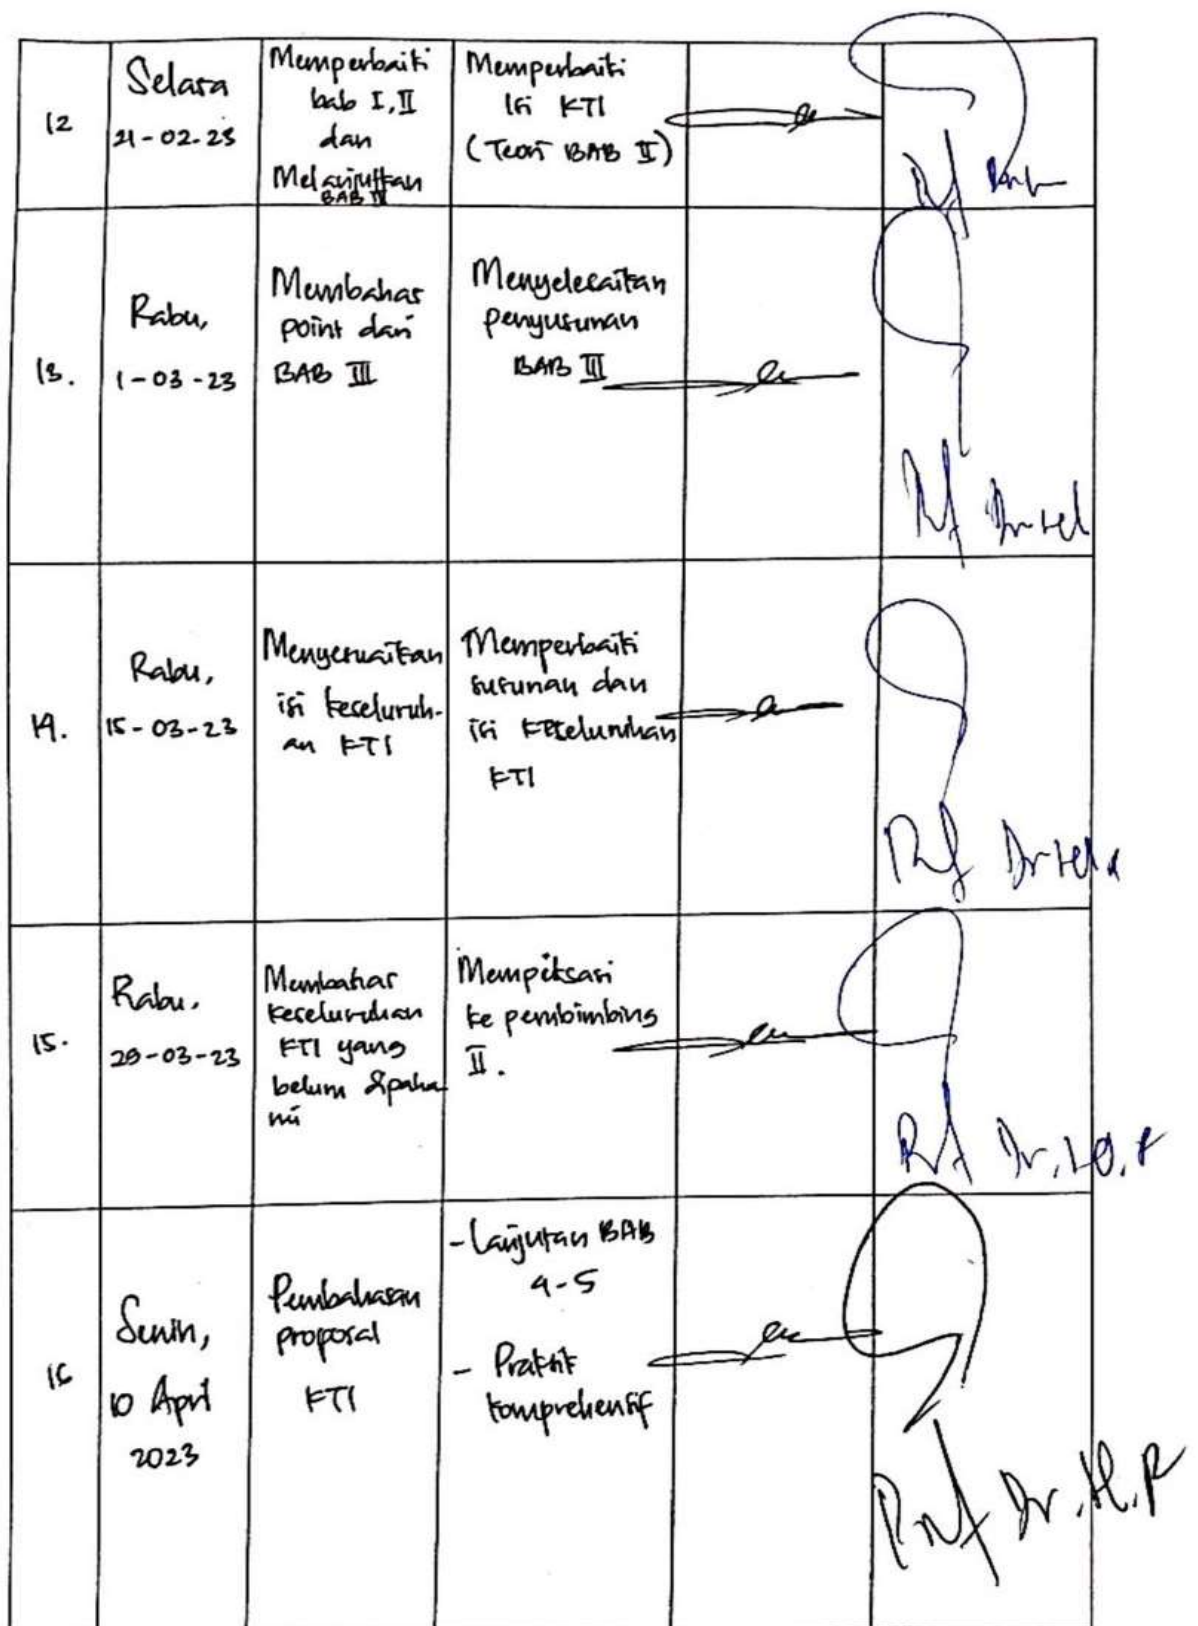 12
Selasa
21-02-23
Memperbaiki
bab I, II
dan
Melanjutkan
BAB IV
Memperbaiki
Isi KTI
(Teori BAB II)
13.
Rabu,
1-03-23
Membahas
point dari
BAB III
Menyelesaikan
penyusunan
BAB III
Prof
14.
Rabu,
15-03-23
Menyesuaikan
isi keseluruh-
an KTI
Memperbaiki
susunan dan
isi keseluruhan
KTI
Prof
15.
Rabu,
29-03-23
Membahas
keseluruhan
KTI yang
belum dipaha
mi
ke pembimbing
II.
16
Senin,
10 April
2023
Pembahasan
proposal
KTI
- Lanjutan BAB
4-5
- Praktik
komprehensif
Prof Dr. H. P